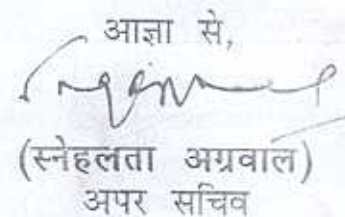 आज्ञा से,
(स्नेहलता अग्रवाल)
अपर सचिव